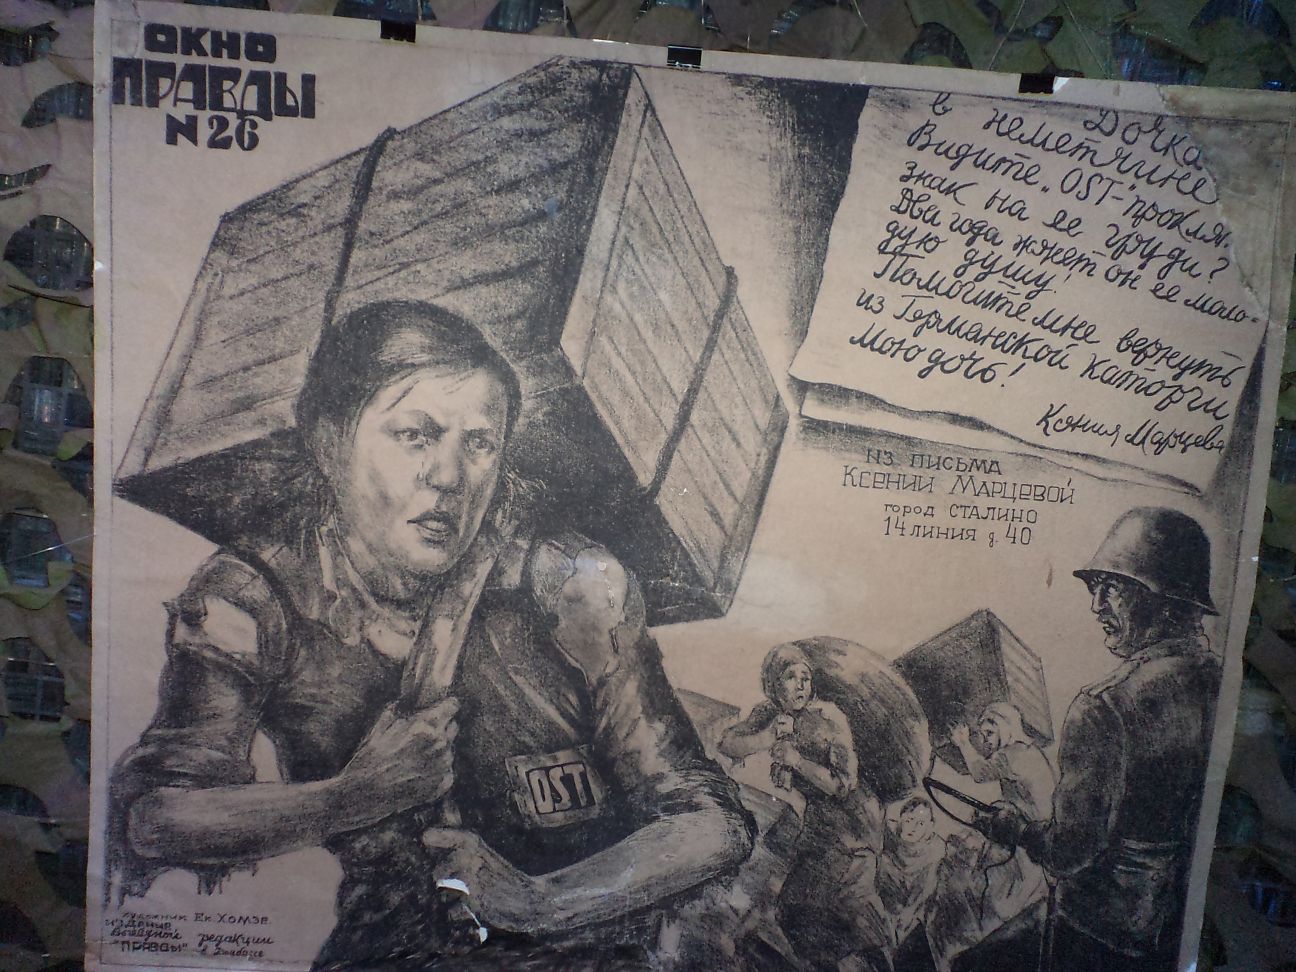 ОКНО
ПРАВДЫ
N26
Дочка
в неметчине
Видите „OST"-прокля.
знак на ее груди?
Два года жжет он ее моло-
дую душу!
Помогите мне вернуть
из Германской каторги
мою дочь!
Ксения Марцева
ИЗ ПИСЬМА
КСЕНИИ МАРЦЕВОЙ
ГОРОД СТАЛИНО
14 ЛИНИЯ д. 40
OST
ХУДОЖНИК ЕК. ХОМЗЕ
ИЗДАНИЕ
Выездной редакции
"ПРАВДЫ" в Донбассе